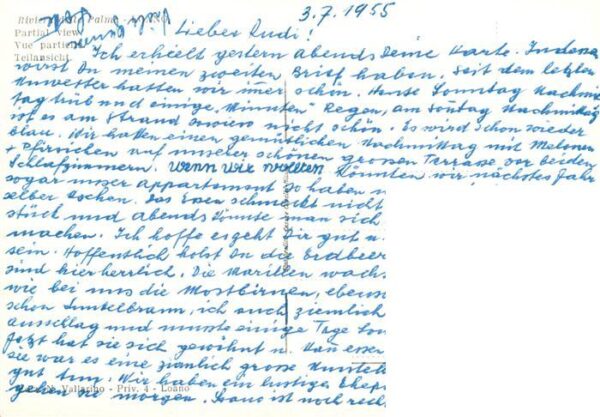 3.7.1955
Lieber Rudi!
Riviera delle Palme - LOANO
Partial view
Vue partielle
Teilansicht
Ich erhielt gestern abends Deine Karte. Indessen
wirst Du meinen zweiten Brief haben. Seit dem letzten
Unwetter hatten wir immer schön. Heute Sonntag Nachmit-
tag trüb und einige "Minuten" Regen, am Sonntag Nachmittag
ist es am Strand sowieso nicht schön. Es wird schon wieder
blau. Wir hatten einen gemütlichen Nachmittag mit Melonen
+ Pfirsichen auf unserer schönen grossen Terrasse vor beiden
Schlafzimmern. Wenn wir wollten könnten wir nächstes Jahr
sogar unser appartement so haben
selber kochen. Das Essen schmeckt nicht
stück und abends könnte man sich
machen. Ich hoffe es geht Dir gut u.
sein. Hoffentlich holst Du die Erdbeer
sind hier herrlich. Die Marillen wachs
wie bei uns die Mostbirnen, ebenso
schon dunkelbraun, ich auch ziemlich
ausschlag und musste einige Tage
Jetzt hat sie sich gewöhnt u. kann
sie war es eine ziemlich grosse
gut tun. Wir haben ein lustiges Ehep
gehen sie morgen. Loano ist noch
Vallarino - Priv. 4 - Loano